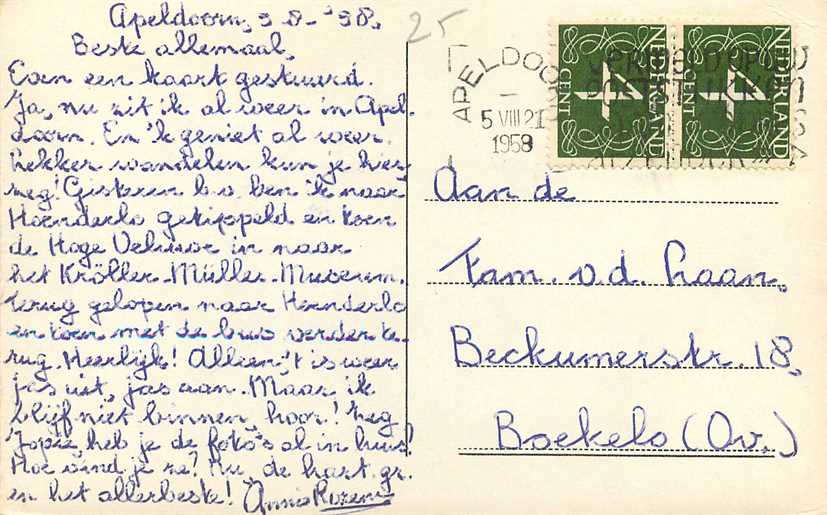 Apeldoorn, 5-8-'58.
Beste allemaal,
Even een kaart gestuurd.
Ja, nu zit ik al weer in Apel-
doorn. En 'k geniet al weer.
Lekker wandelen kun je hier
zeg! Gisteren b.v. ben ik naar
Hoenderlo getippeld en toen
de Hoge Veluwe in naar
het Kröller-Müller-Museum.
terug gelopen naar Hoenderlo
en toen met de bus verder te-
rug. Heerlijk! Alleen 't is weer
jas uit, jas aan. Maar ik
blijf niet binnen, hoor! Zeg
Jopie, heb je de foto's al in huis?
Hoe vind je ze? Nu, de hart. gr.
en het allerbeste! Annie
25
APELDOO
5 VIII 21
1958
NEDERLAND
4
CENT
NEDERLAND
4
CENT
Aan de
Fam. v.d. Laan,
Beckumerstr. 18,
Boekelo (Ov.)